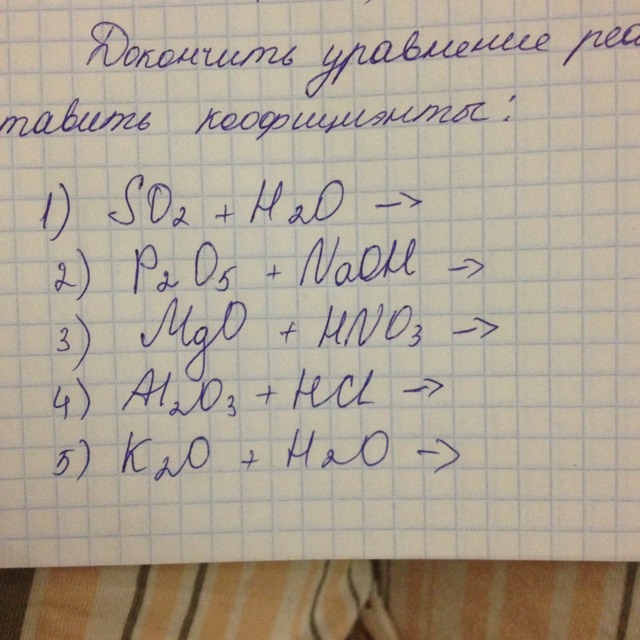 Докончить уравнение реа
тавить коофициэнты:
1) SO2 + H2O →
2) P2O5 + NaOH →
3) MgO + HNO3 →
4) Al2O3 + HCl →
5) K2O + H2O →